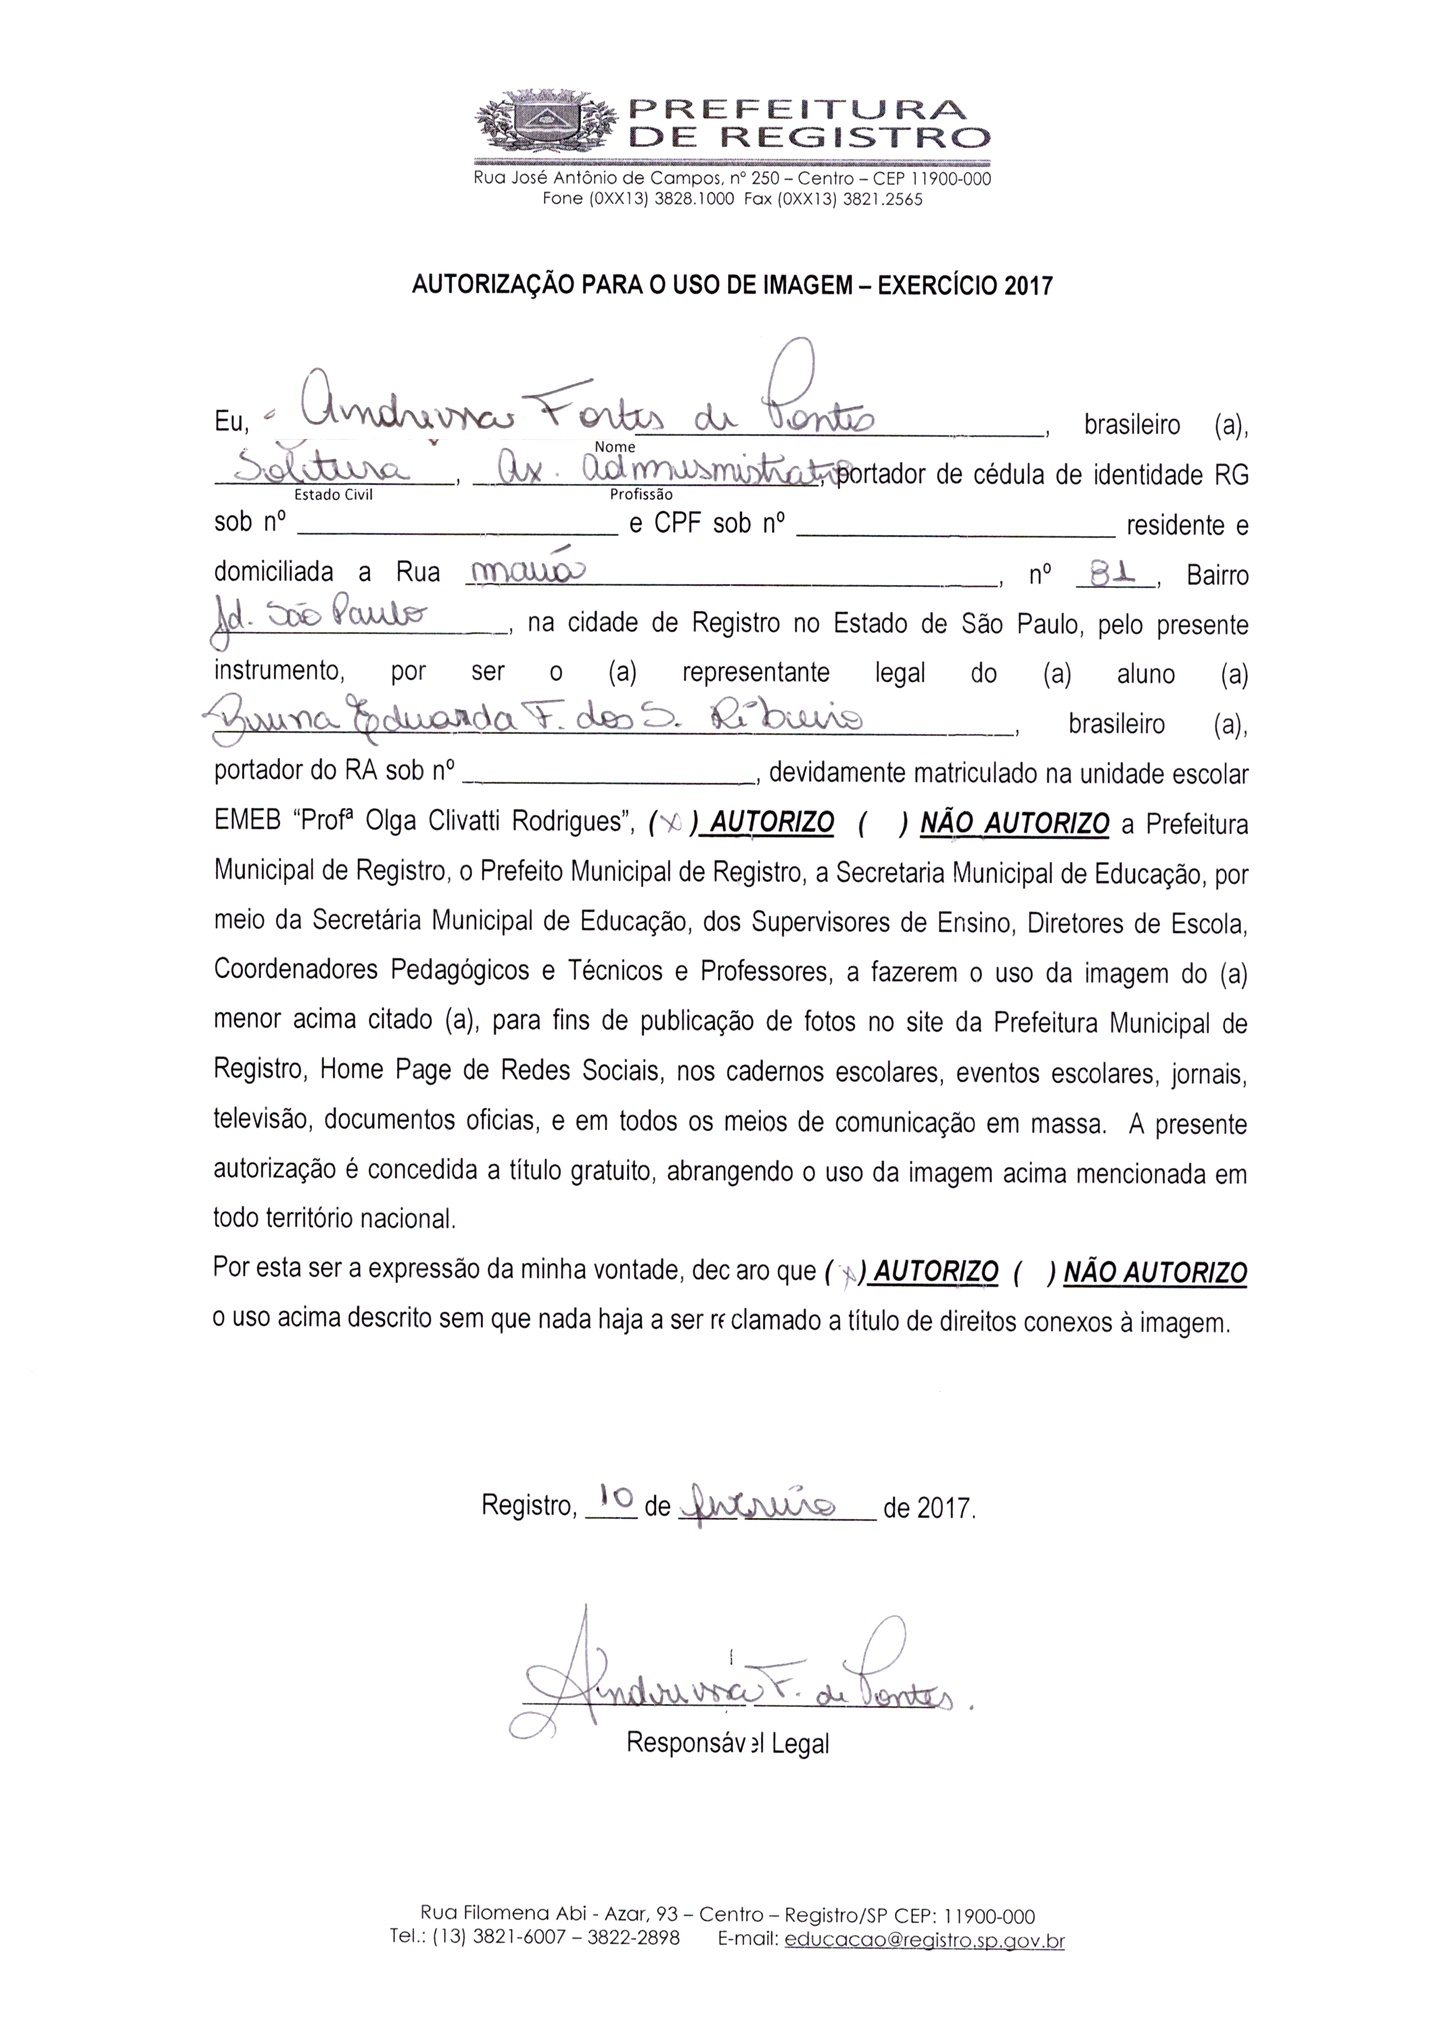 PREFEITURA
DE REGISTRO
Rua José Antônio de Campos, nº 250 – Centro – CEP 11900-000
Fone (0XX13) 3828.1000 Fax (0XX13) 3821.2565
AUTORIZAÇÃO PARA O USO DE IMAGEM – EXERCÍCIO 2017
Eu, Andreissa Fortes de Pontes, brasileiro (a),
Nome
Solteira, Ax. Administrativo, portador de cédula de identidade RG
Estado Civil Profissão
sob nº ____ e CPF sob nº ____ residente e
domiciliada a Rua mauá, nº 81, Bairro
Jd. São Paulo, na cidade de Registro no Estado de São Paulo, pelo presente
instrumento, por ser o (a) representante legal do (a) aluno (a)
Bruna Eduarda F. dos S. Ribeiro, brasileiro (a),
portador do RA sob nº ____, devidamente matriculado na unidade escolar
EMEB “Profª Olga Clivatti Rodrigues”, (X) AUTORIZO ( ) NÃO AUTORIZO a Prefeitura
Municipal de Registro, o Prefeito Municipal de Registro, a Secretaria Municipal de Educação, por
meio da Secretária Municipal de Educação, dos Supervisores de Ensino, Diretores de Escola,
Coordenadores Pedagógicos e Técnicos e Professores, a fazerem o uso da imagem do (a)
menor acima citado (a), para fins de publicação de fotos no site da Prefeitura Municipal de
Registro, Home Page de Redes Sociais, nos cadernos escolares, eventos escolares, jornais,
televisão, documentos oficias, e em todos os meios de comunicação em massa. A presente
autorização é concedida a título gratuito, abrangendo o uso da imagem acima mencionada em
todo território nacional.
Por esta ser a expressão da minha vontade, declaro que (X) AUTORIZO ( ) NÃO AUTORIZO
o uso acima descrito sem que nada haja a ser reclamado a título de direitos conexos à imagem.
Registro, 10 de fevereiro de 2017.
Andreissa F. de Pontes.
Responsável Legal
Rua Filomena Abi - Azar, 93 – Centro – Registro/SP CEP: 11900-000
Tel.: (13) 3821-6007 – 3822-2898 E-mail: educacao@registro.sp.gov.br